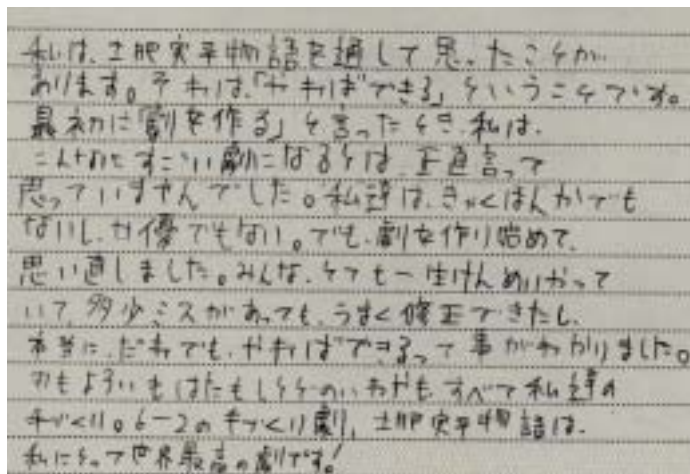 私は、土肥実平物語を通して思ったことが
あります。それは、「やればできる」ということです。
最初に「劇を作る」と言ったとき、私は、
こんなにすごい劇になるとは、正直言って
思っていませんでした。私達は、きゃくほんかでも
ないし、女優でもない。でも、劇を作り始めて、
思い直しました。みんな、とても一生けんめいやって
いて、多少ミスがあっても、うまく修正できたし、
本当に、だれでも、やればできるって事がわかりました。
すべて私達の
手づくり。6-2の手づくり劇、土肥実平物語は、
私にとって世界最高の劇です!